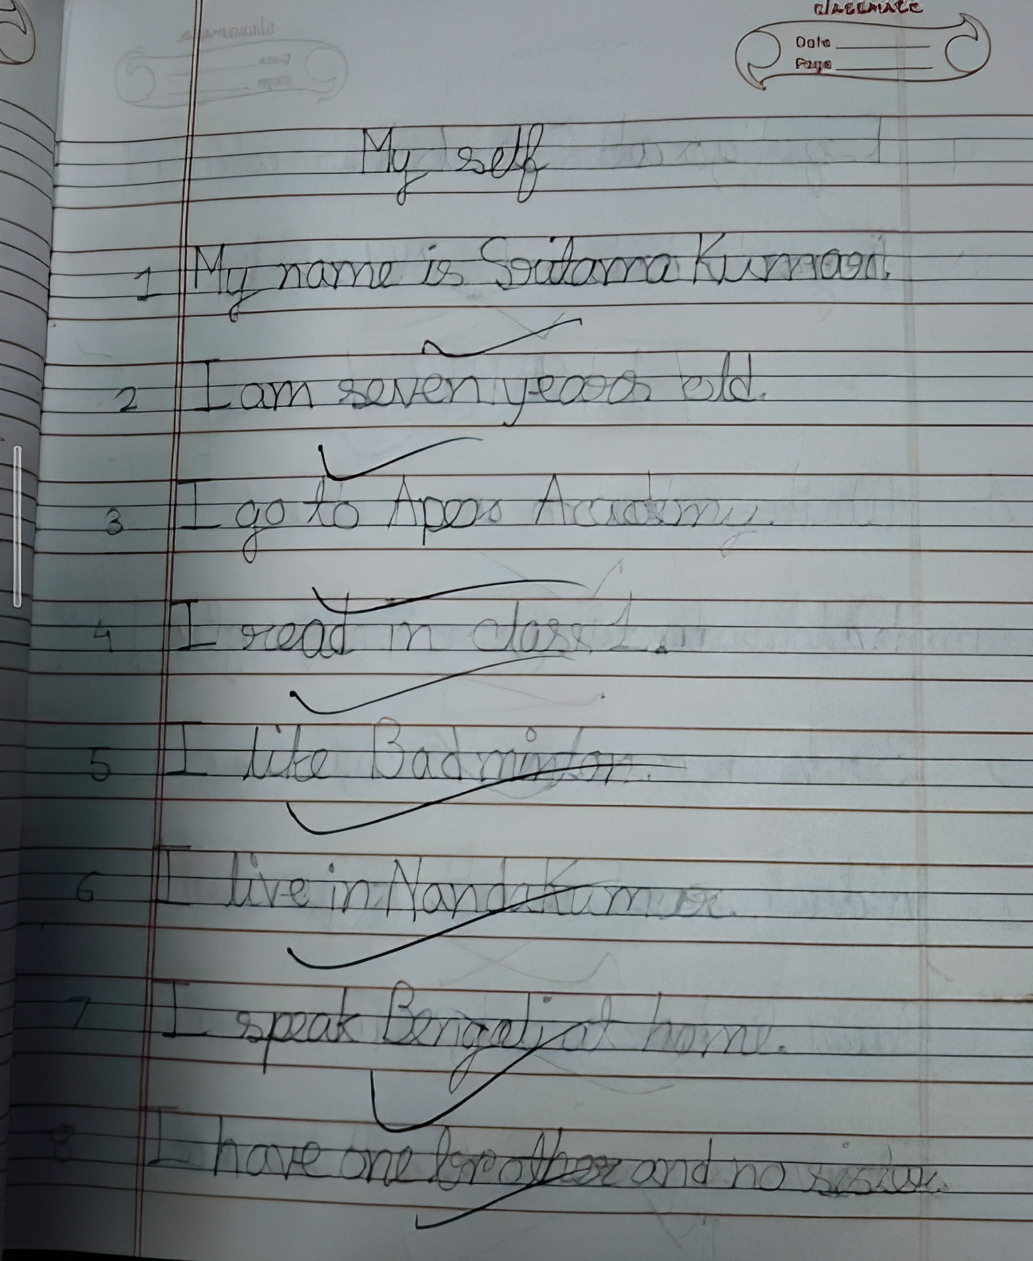 classmate
Date
Page
My self
1 My name is Sritama Kumari.
2 I am seven years old.
3 I go to Apex Academy.
4 I read in class 1.
5 I like Badminton.
6 I live in Nandakumar.
7 I speak Bengali at home.
8 I have one brother and no sister.